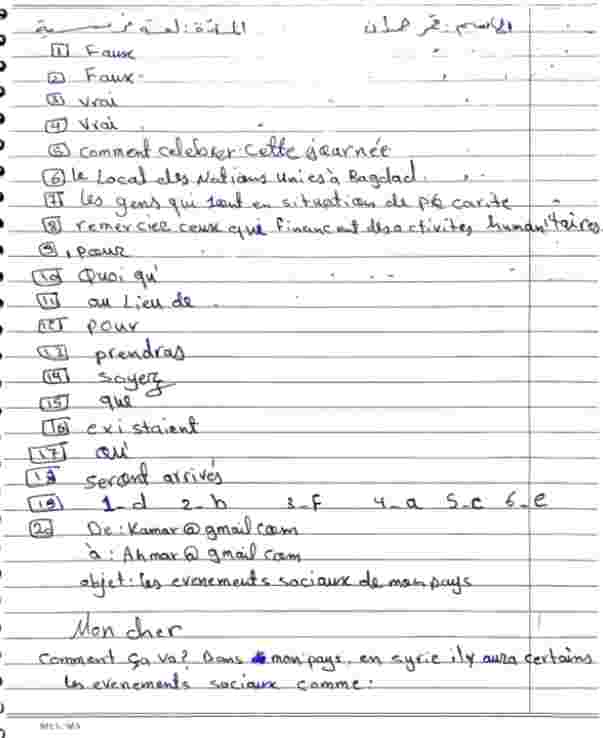 الاسم: قمر حمدان المادة: لغة فرنسية
1 Faux
2 Faux
3 vrai
4 vrai
5 comment celebrer cette journée
6 le Local des Nations unies à Bagdad.
7 les gens qui sont en situation de pécarité
8 remercier ceux qui financent des activites humanitaires
9 pour
10 Quoi qu'
11 au Lieu de
12 pour
13 prendras
14 soyez
15 que
16 existaient
17 où
18 seront arrivés
19 1-d 2-b 3-F 4-a 5-c 6-e
20 De: Kamar@gmail com
à: Ahmar@gmail com
objet: les evenements sociaux de mon pays
Mon cher
Comment ça va? Dans mon pays, en syrie il y aura certains
les evenements sociaux comme: